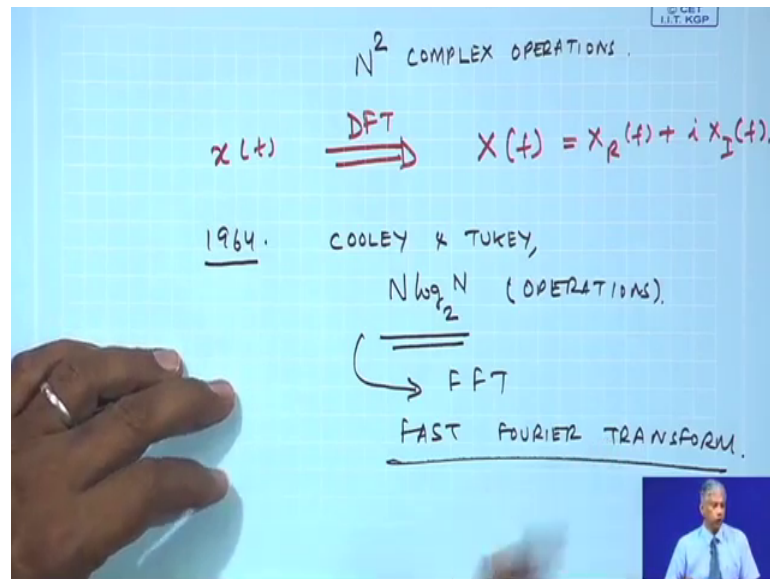 © CET
I.I.T. KGP
N² COMPLEX OPERATIONS.
x(t) DFT X(f) = X_R(f) + i X_I(f).
1964. COOLEY & TUKEY,
N log₂ N (OPERATIONS).
FFT
FAST FOURIER TRANSFORM.